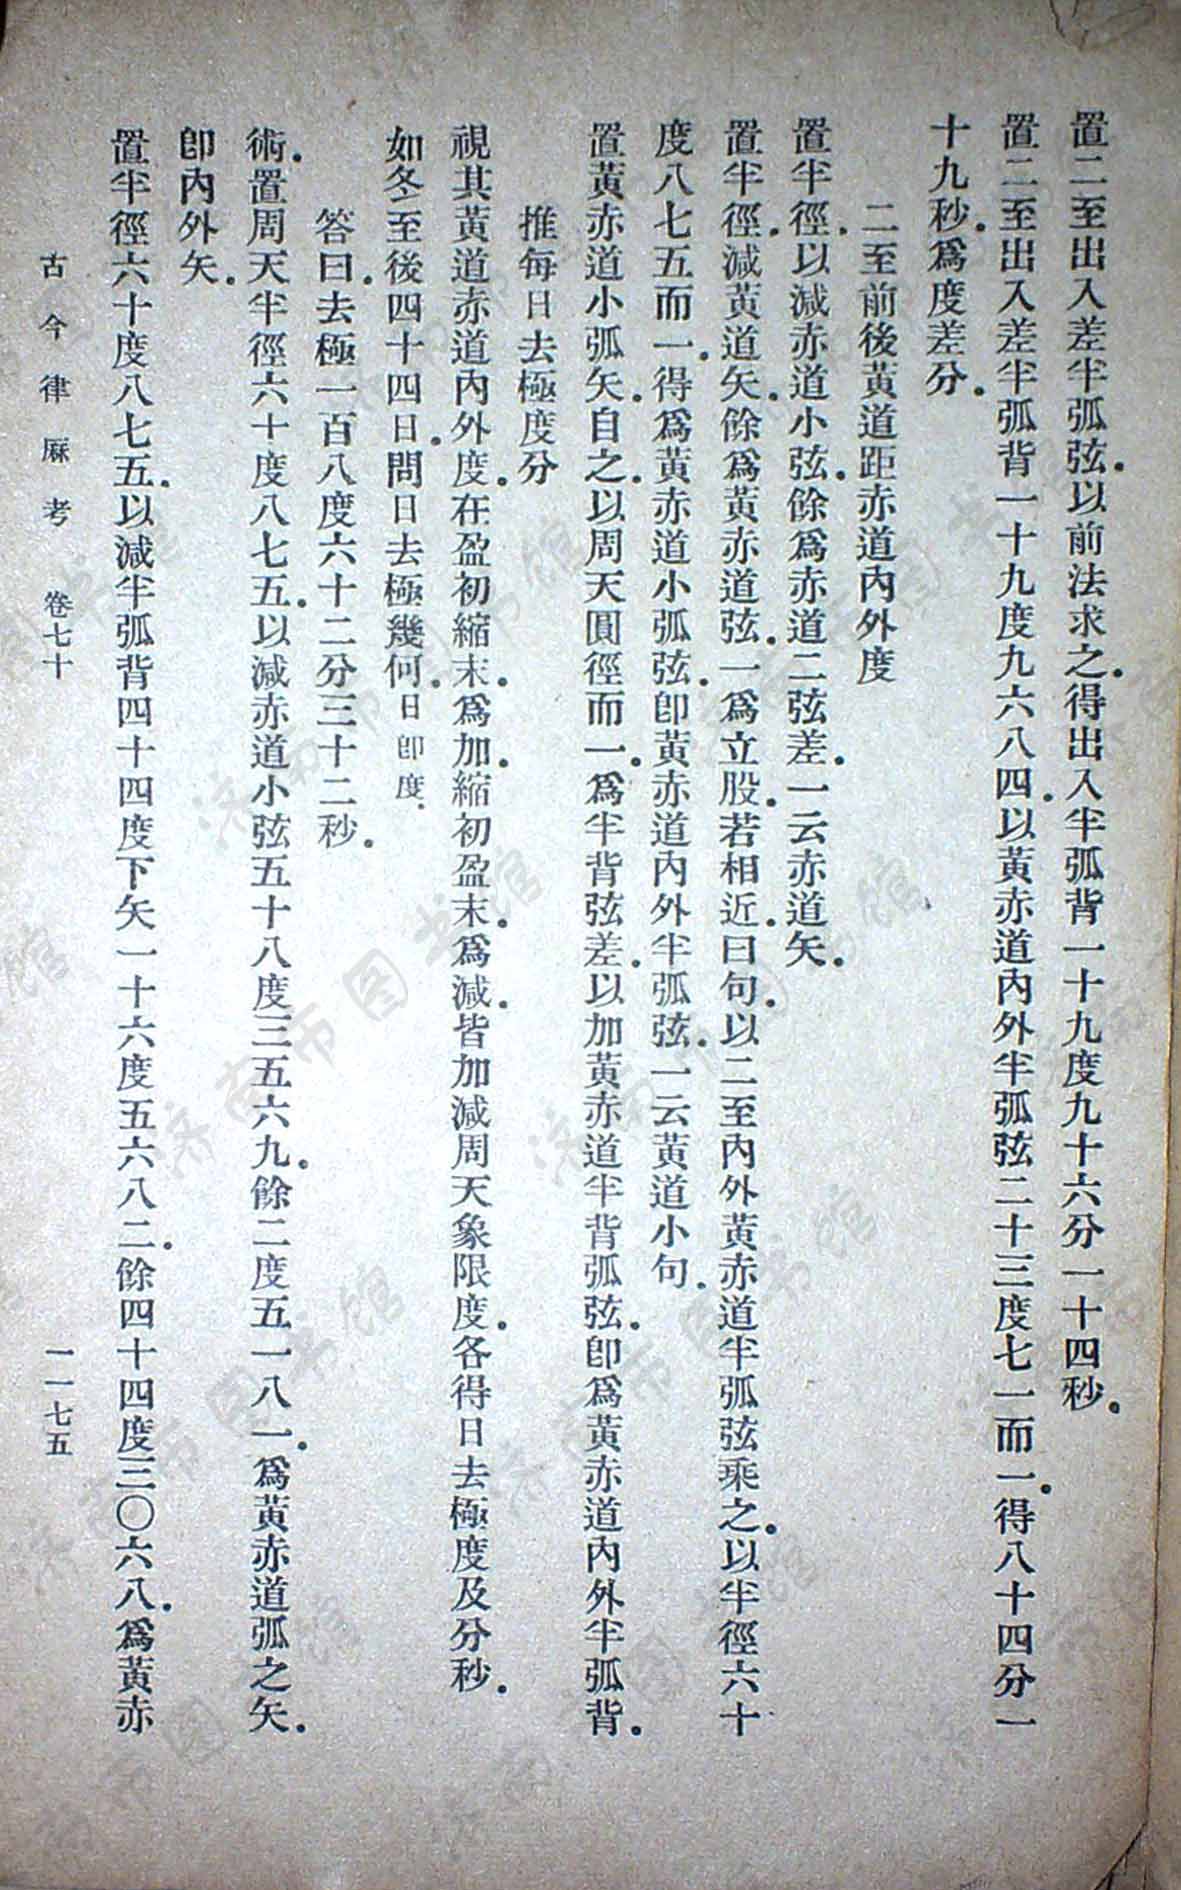 置二至出入差半弧弦以前法求之得出入半弧背一十九度九十六分一十四秒
置二至出入差半弧背一十九度九六八四以黃赤道內外半弧弦二十三度七一而一得八十四分一
十九秒爲度差分
二至前後黃道距赤道內外度
置半徑以減赤道小弦餘爲赤道二弦差一云赤道矢
置半徑減黃道矢餘爲黃赤道弦一爲立股若相近曰句以二至內外黃赤道半弧弦乘之以半徑六十
度八七五而一得爲黃赤道小弧弦卽黃赤道內外半弧弦一云黃道小句
置黃赤道小弧矢自之以周天圓徑而一爲半背弦差以加黃赤道半背弧弦卽爲黃赤道內外半弧背
推每日去極度分
視其黃道赤道內外度在盈初縮末爲加縮初盈末爲減皆加減周天象限度各得日去極度及分秒
如冬至後四十四日問日去極幾何日卽度
答曰去極一百八度六十二分三十二秒
術置周天半徑六十度八七五以減赤道小弦五十八度三五六九餘二度五一八一爲黃赤道弧之矢
卽內外矢
置半徑六十度八七五以減半弧背四十四度下矢一十六度五六八二餘四十四度三〇六八爲黃赤
古今律厤考 卷七十 一一七五